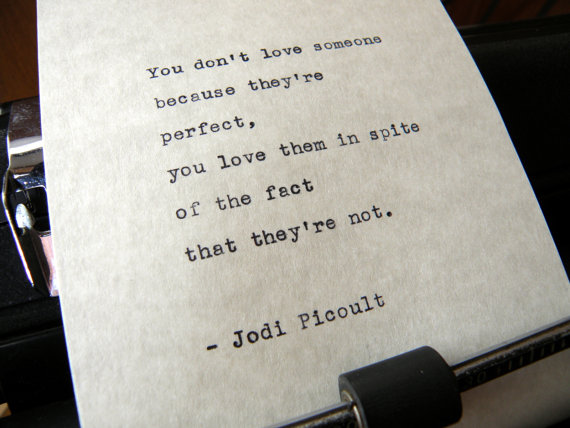 You don't love someone
because they're
perfect,
you love them in spite
of the fact
that they're not.
- Jodi Picoult